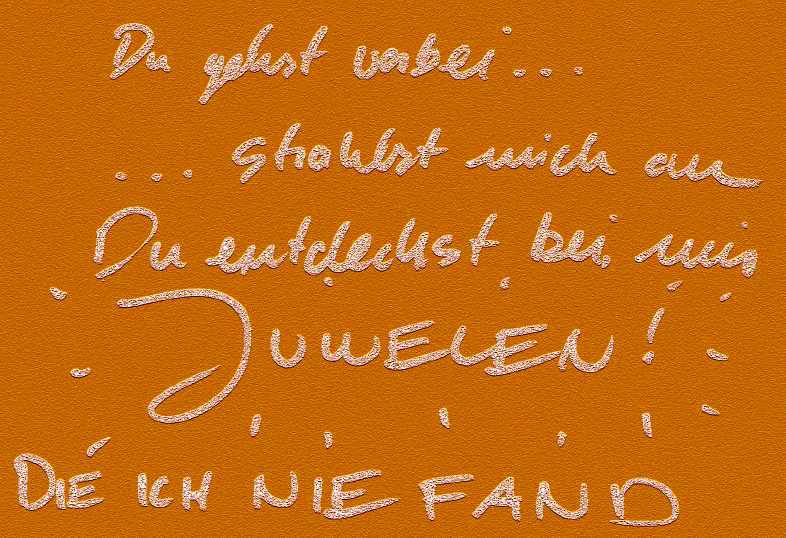 Du gehst vorbei...
... strahlst mich an
Du entdeckst bei mir
JUWELEN!
DIE ICH NIE FAND